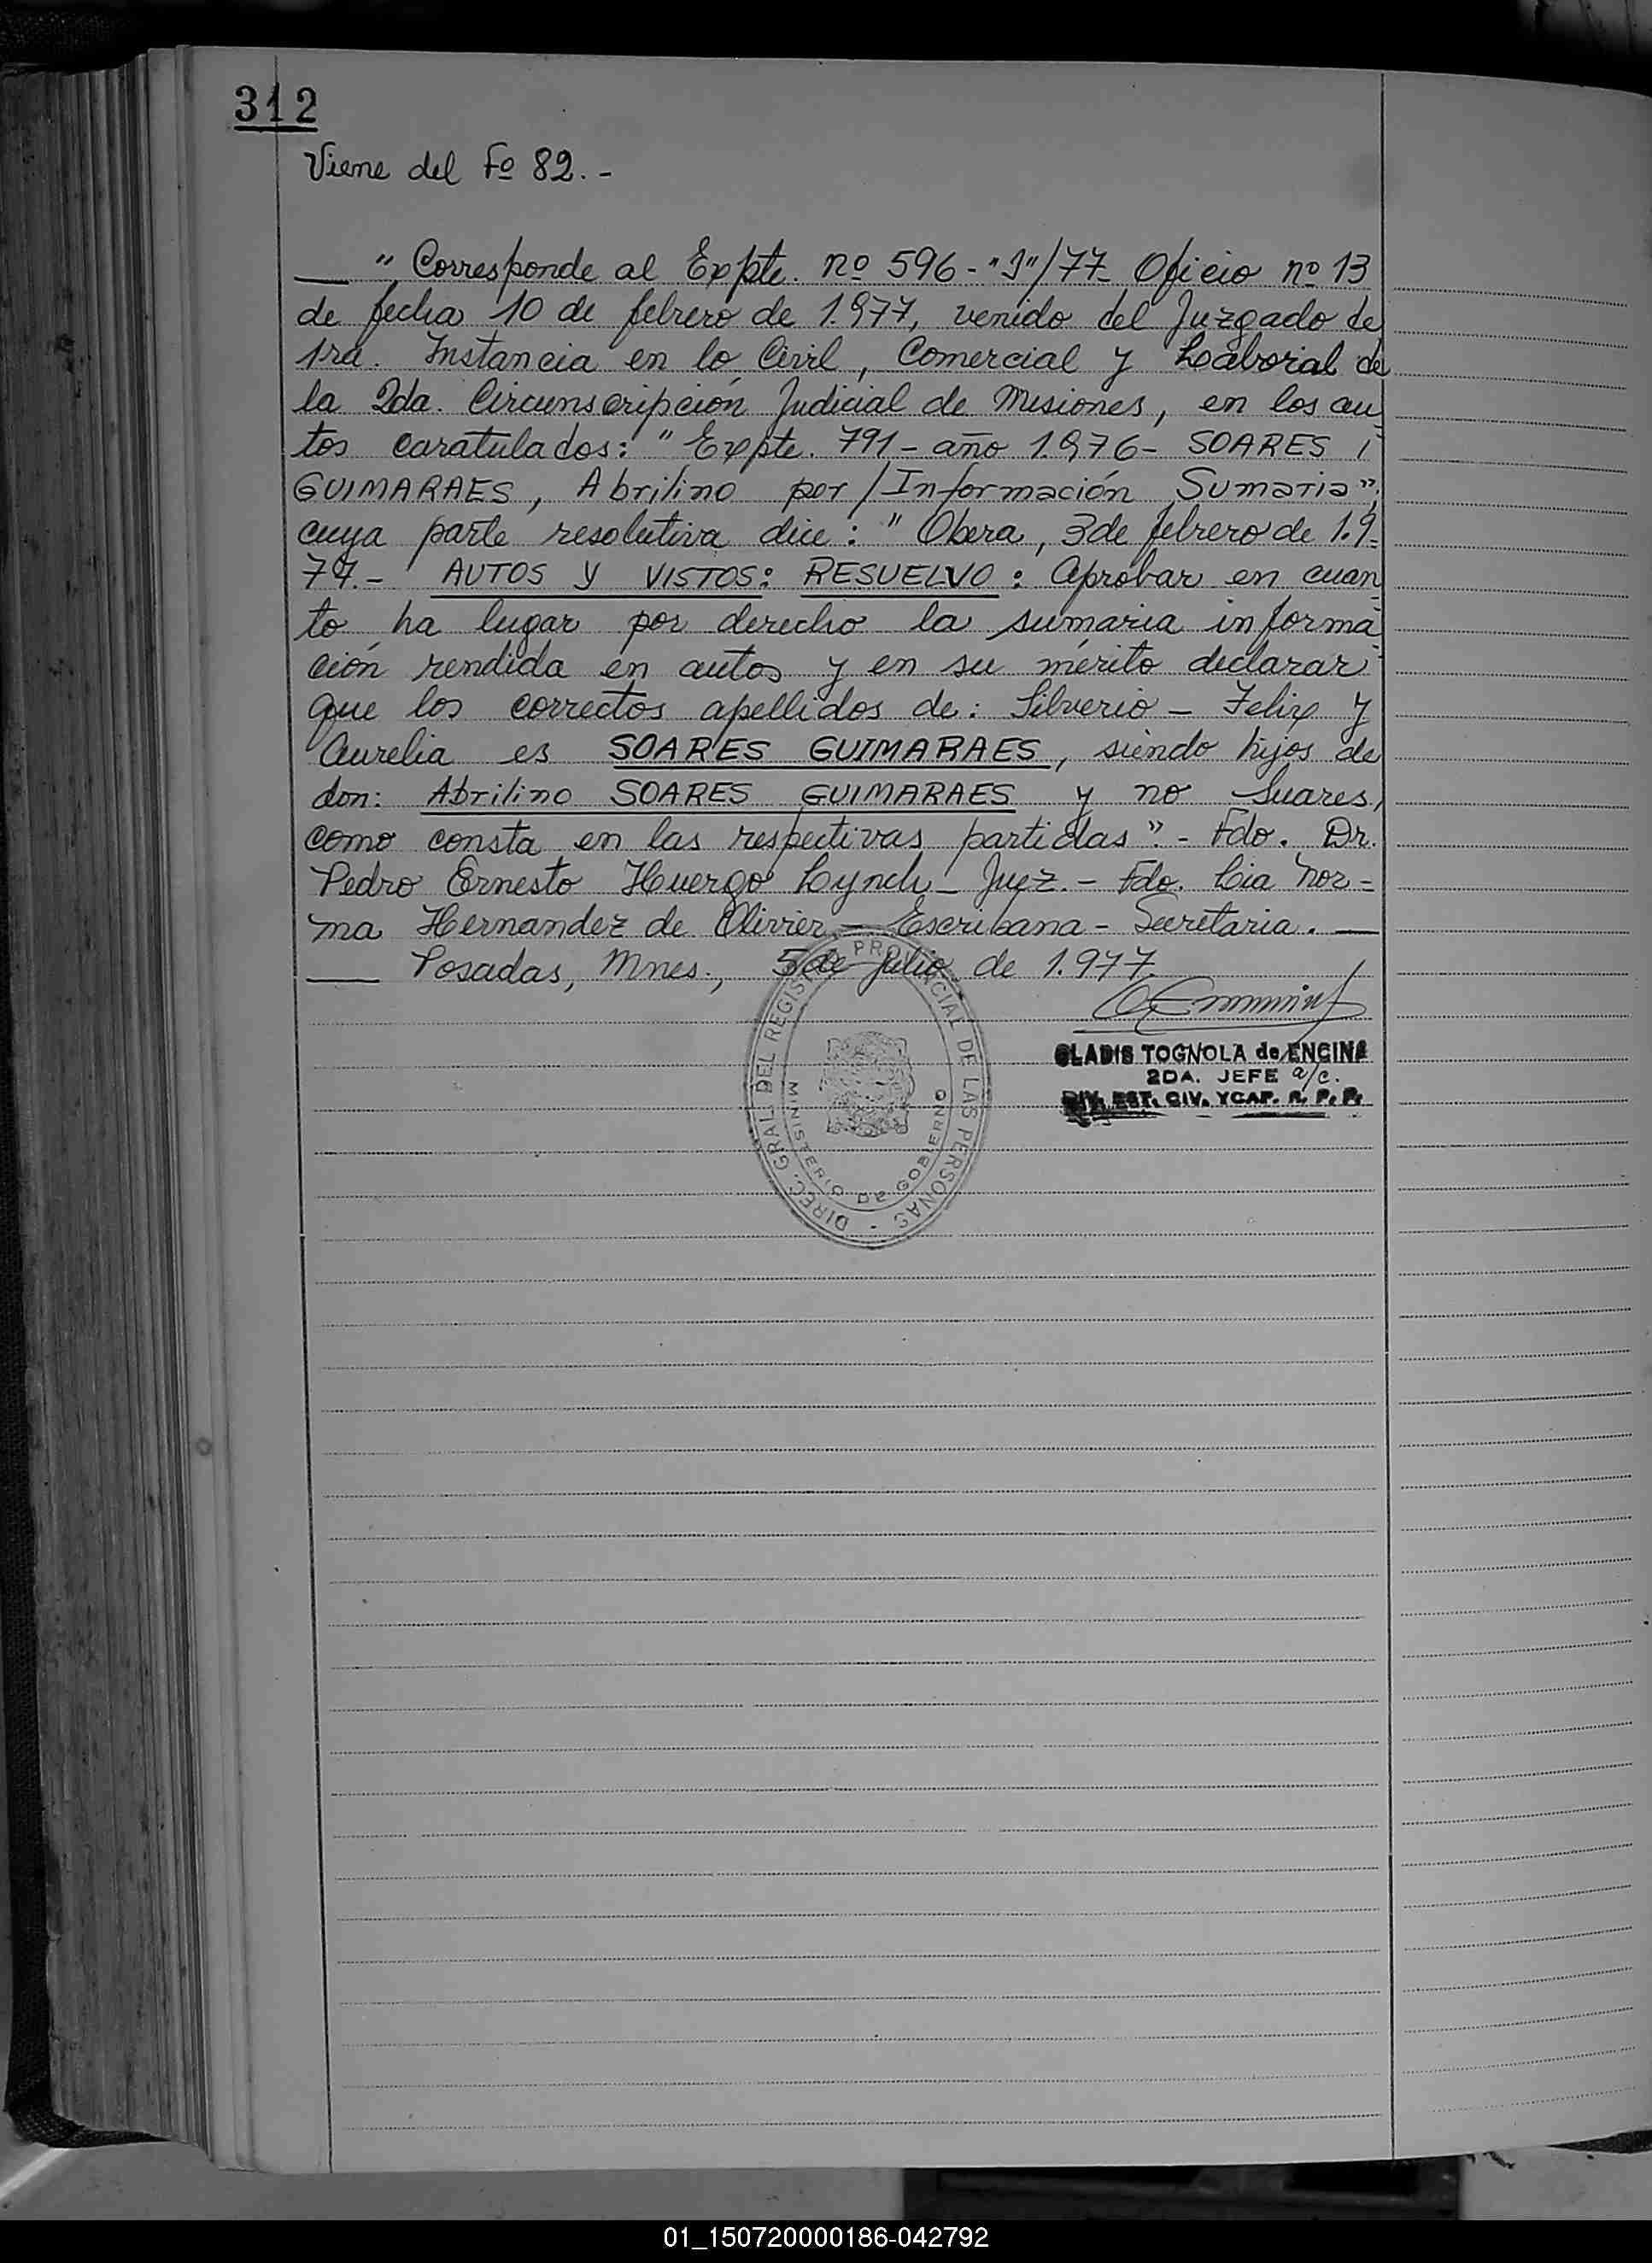 312
Viene del Fº 82.-
" Corresponde al Expte. nº 596-"J"/77- Oficio nº 13
de fecha 10 de febrero de 1.977, venido del Juzgado de
1ra. Instancia en lo Civil, Comercial y Laboral de
la 2da. Circunscripción Judicial de Misiones, en los au
tos caratulados: "Expte. 791- año 1.976- SOARES
GUIMARAES, Abrilino por/Información Sumaria",
cuya parte resolutiva dice: " Obera, 3 de febrero de 1.9-
77.- AUTOS Y VISTOS: RESUELVO: Aprobar en cuan
to ha lugar por derecho la sumaria informa
ción rendida en autos y en su mérito declarar
que los correctos apellidos de: Silverio - Felix y
Aurelia es SOARES GUIMARAES, siendo hijos de
don: Abrilino SOARES GUIMARAES y no Suares,
como consta en las respectivas partidas".- Fdo. Dr.
Pedro Ernesto Huergo Lynch- Juez.- Fdo. Lia Nor-
ma Hernandez de Olivier - Escribana - Secretaria.
Posadas, Mnes., 5 de julio de 1.977.
GLADIS TOGNOLA de ENCINA
2DA. JEFE a/c.
DIV. EST. CIV. Y CAP. R. P. P.
DIREC. GRAL DEL REGISTRO PROVINCIAL DE LAS PERSONAS -
MINISTERIO DE GOBIERNO
01_150720000186-042792